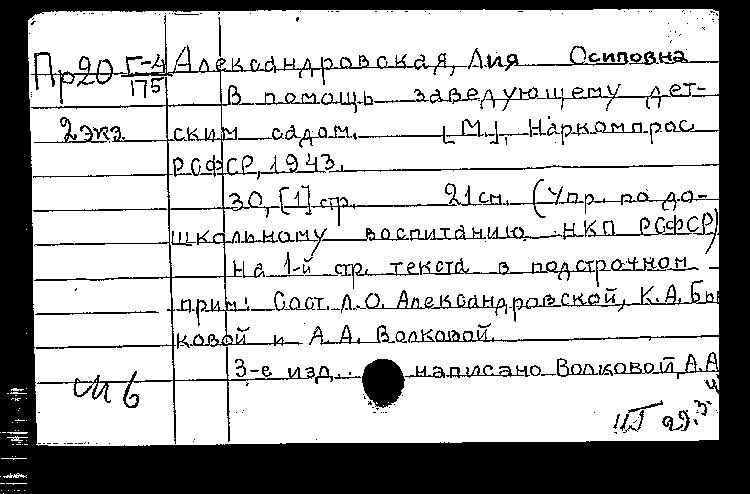 Пр20 Г-4/175 Александровская, Лия Осиповна
В помощь заведующему дет-
2 экз. ским садом. [М.], Наркомпрос
РСФСР, 1943.
30, [1] стр. 21 см. (Упр. по до-
школьному воспитанию НКП РСФСР)
На 1-й стр. текста в подстрочном
прим: Сост. Л.О. Александровской, К.А. Бы
ковой и А.А. Волковой.
3-е изд. написано Волковой, А.А